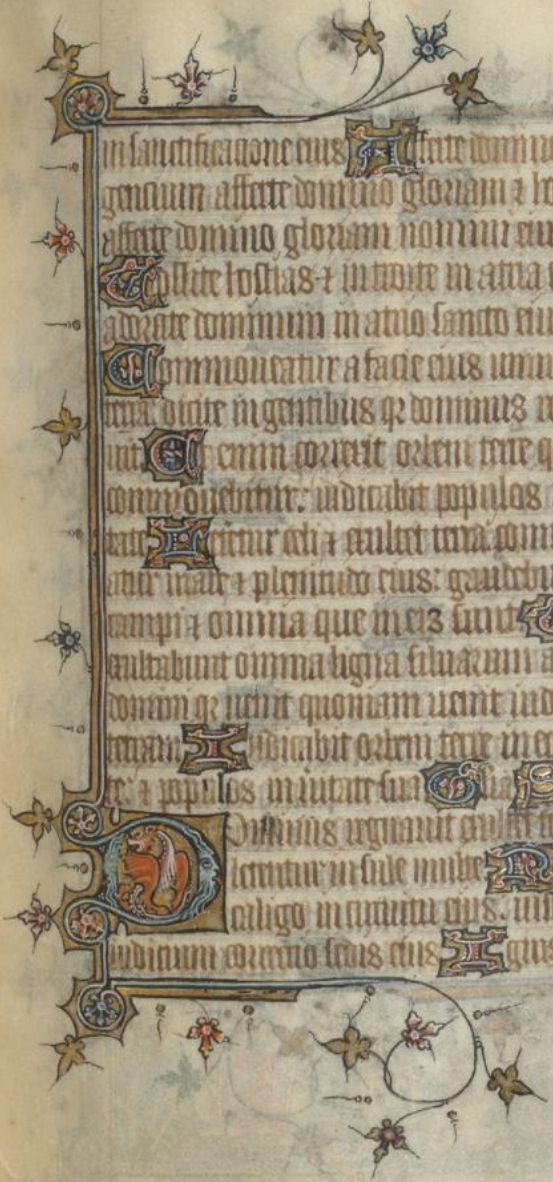 in sanctificatione eius Afferte domin
gentium afferte domino gloriam ⁊ ho
afferte domino gloriam nomini eiu
Tollite hostias ⁊ introite in atria
adorate dominum in atrio sancto eiu
Commoueatur a facie eius uniu
terra dicite in gentibus qz dominus r
uit Et enim correxit orbem terre q
commouebitur: iudicabit populos
tate Letentur celi ⁊ exultet terra comm
atur mare ⁊ plenitudo eius: gaudebu
campi ⁊ omnia que in eis sunt
exultabunt omnia ligna siluarum a
domini qz uenit quoniam uenit iud
terram Iudicabit orbem terre in e
te: ⁊ populos in uitate sua Glia
Dominus regnauit exultet t
letentur insule multe
caligo in circuitu eius. iust
iudicium correctio sedis eius Ignis